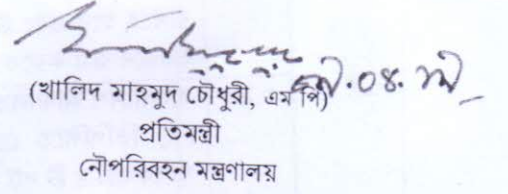 (খালিদ মাহমুদ চৌধুরী, এম পি)
প্রতিমন্ত্রী
নৌপরিবহন মন্ত্রণালয়